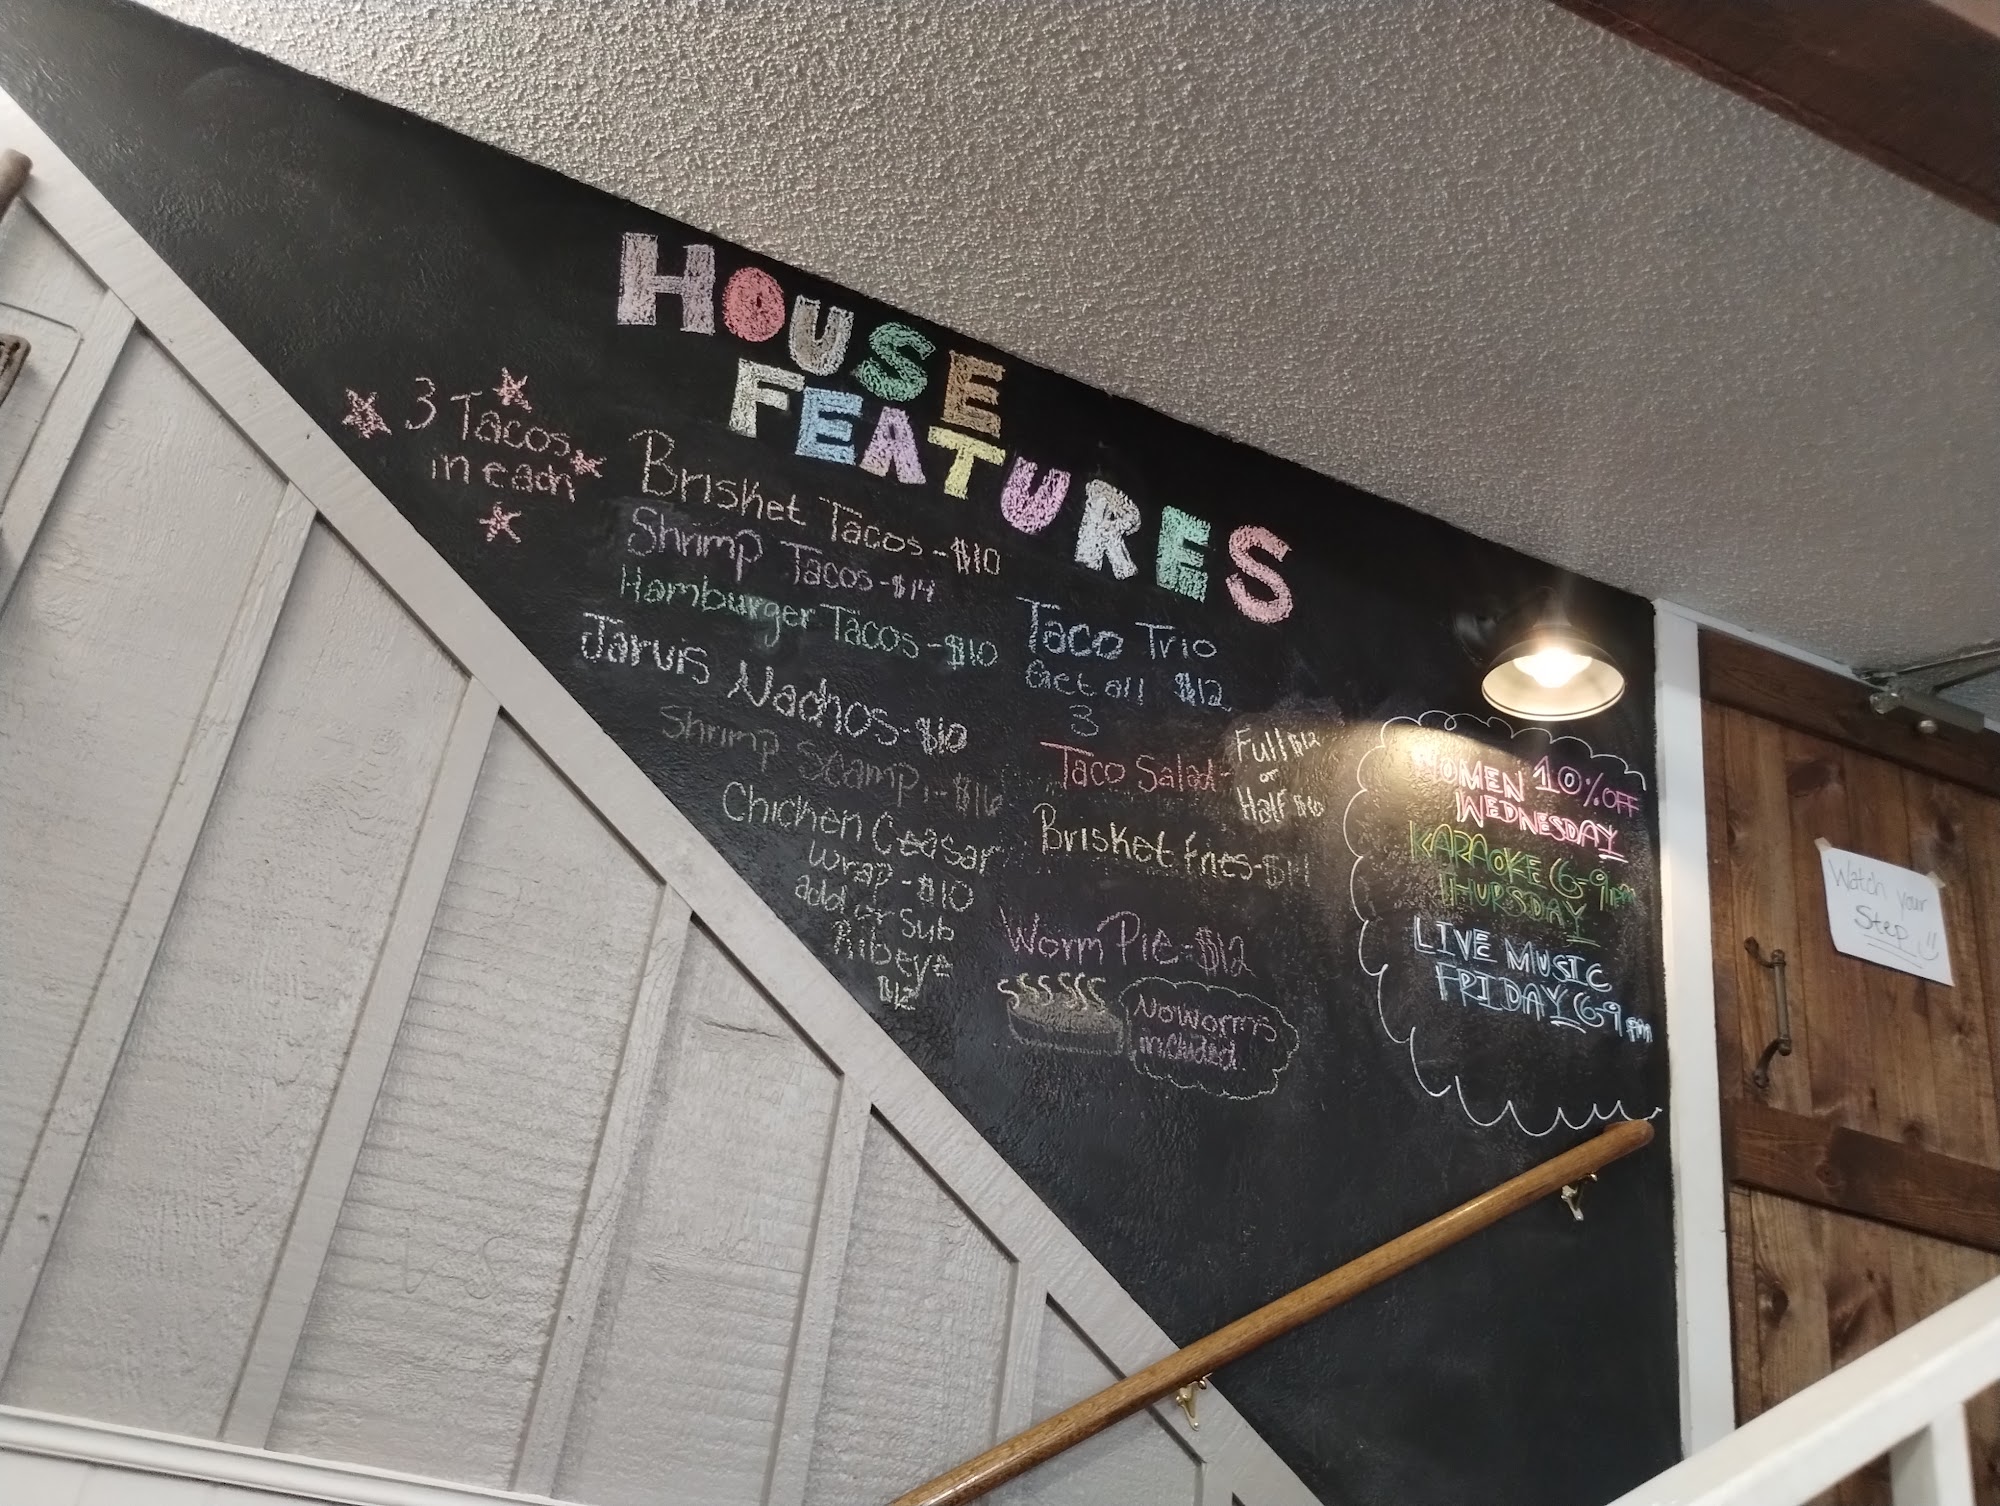 HOUSE
FEATURES
3 Tacos
in each
Brisket Tacos - $10
Shrimp Tacos - $14
Hamburger Tacos - $10
Jarvis Nachos - $10
Shrimp Scampi - $16
Chicken Ceasar
wrap - $10
add or sub
Ribeye
$12
Taco Trio
Get all $12
3
Taco Salad -
Full $12
or
Half $6
Brisket fries - $14
Worm Pie - $12
No worms
included
WOMEN 10% OFF
WEDNESDAY
KARAOKE 6-9pm
THURSDAY
LIVE MUSIC
FRIDAY 6-9 pm
Watch your
Step!!